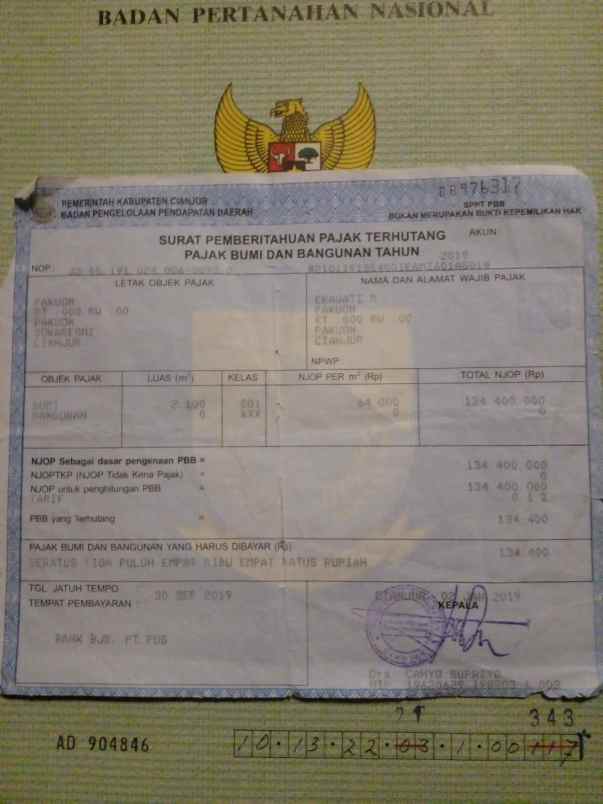 BADAN PERTANAHAN NASIONAL
PEMERINTAH KABUPATEN CIANJUR
BADAN PENGELOLAAN PENDAPATAN DAERAH
SPPT PBB
BUKAN MERUPAKAN BUKTI KEPEMILIKAN HAK
SURAT PEMBERITAHUAN PAJAK TERHUTANG
AKUN
PAJAK BUMI DAN BANGUNAN TAHUN 2019
NOP :
LETAK OBJEK PAJAK
NAMA DAN ALAMAT WAJIB PAJAK
PAKUON
RT : 000 RW : 00
PAKUON
SUKARESMI
CIANJUR
ERAWATI M
PAKUON
RT : 000 RW : 00
PAKUON
CIANJUR
NPWP
OBJEK PAJAK LUAS (m²) KELAS NJOP PER m² (Rp) TOTAL NJOP (Rp)
BUMI 2.100 64.000 134.400.000
BANGUNAN 0 XXX 0 0
NJOP Sebagai dasar pengenaan PBB = 134.400.000
NJOPTKP (NJOP Tidak Kena Pajak) = 0
NJOP untuk penghitungan PBB = 134.400.000
TARIF 0.1 %
PBB yang Terhutang = 134.400
PAJAK BUMI DAN BANGUNAN YANG HARUS DIBAYAR (Rp) 134.400
SERATUS TIGA PULUH EMPAT RIBU EMPAT RATUS RUPIAH
TGL JATUH TEMPO : 30 SEP 2019
TEMPAT PEMBAYARAN :
CIANJUR, 02 JAN 2019
KEPALA
BANK BJB, PT.POS
Drs. CAHYO SUPRIYO
NIP.
21 343
AD 904846
10.13.22.03.1.00117